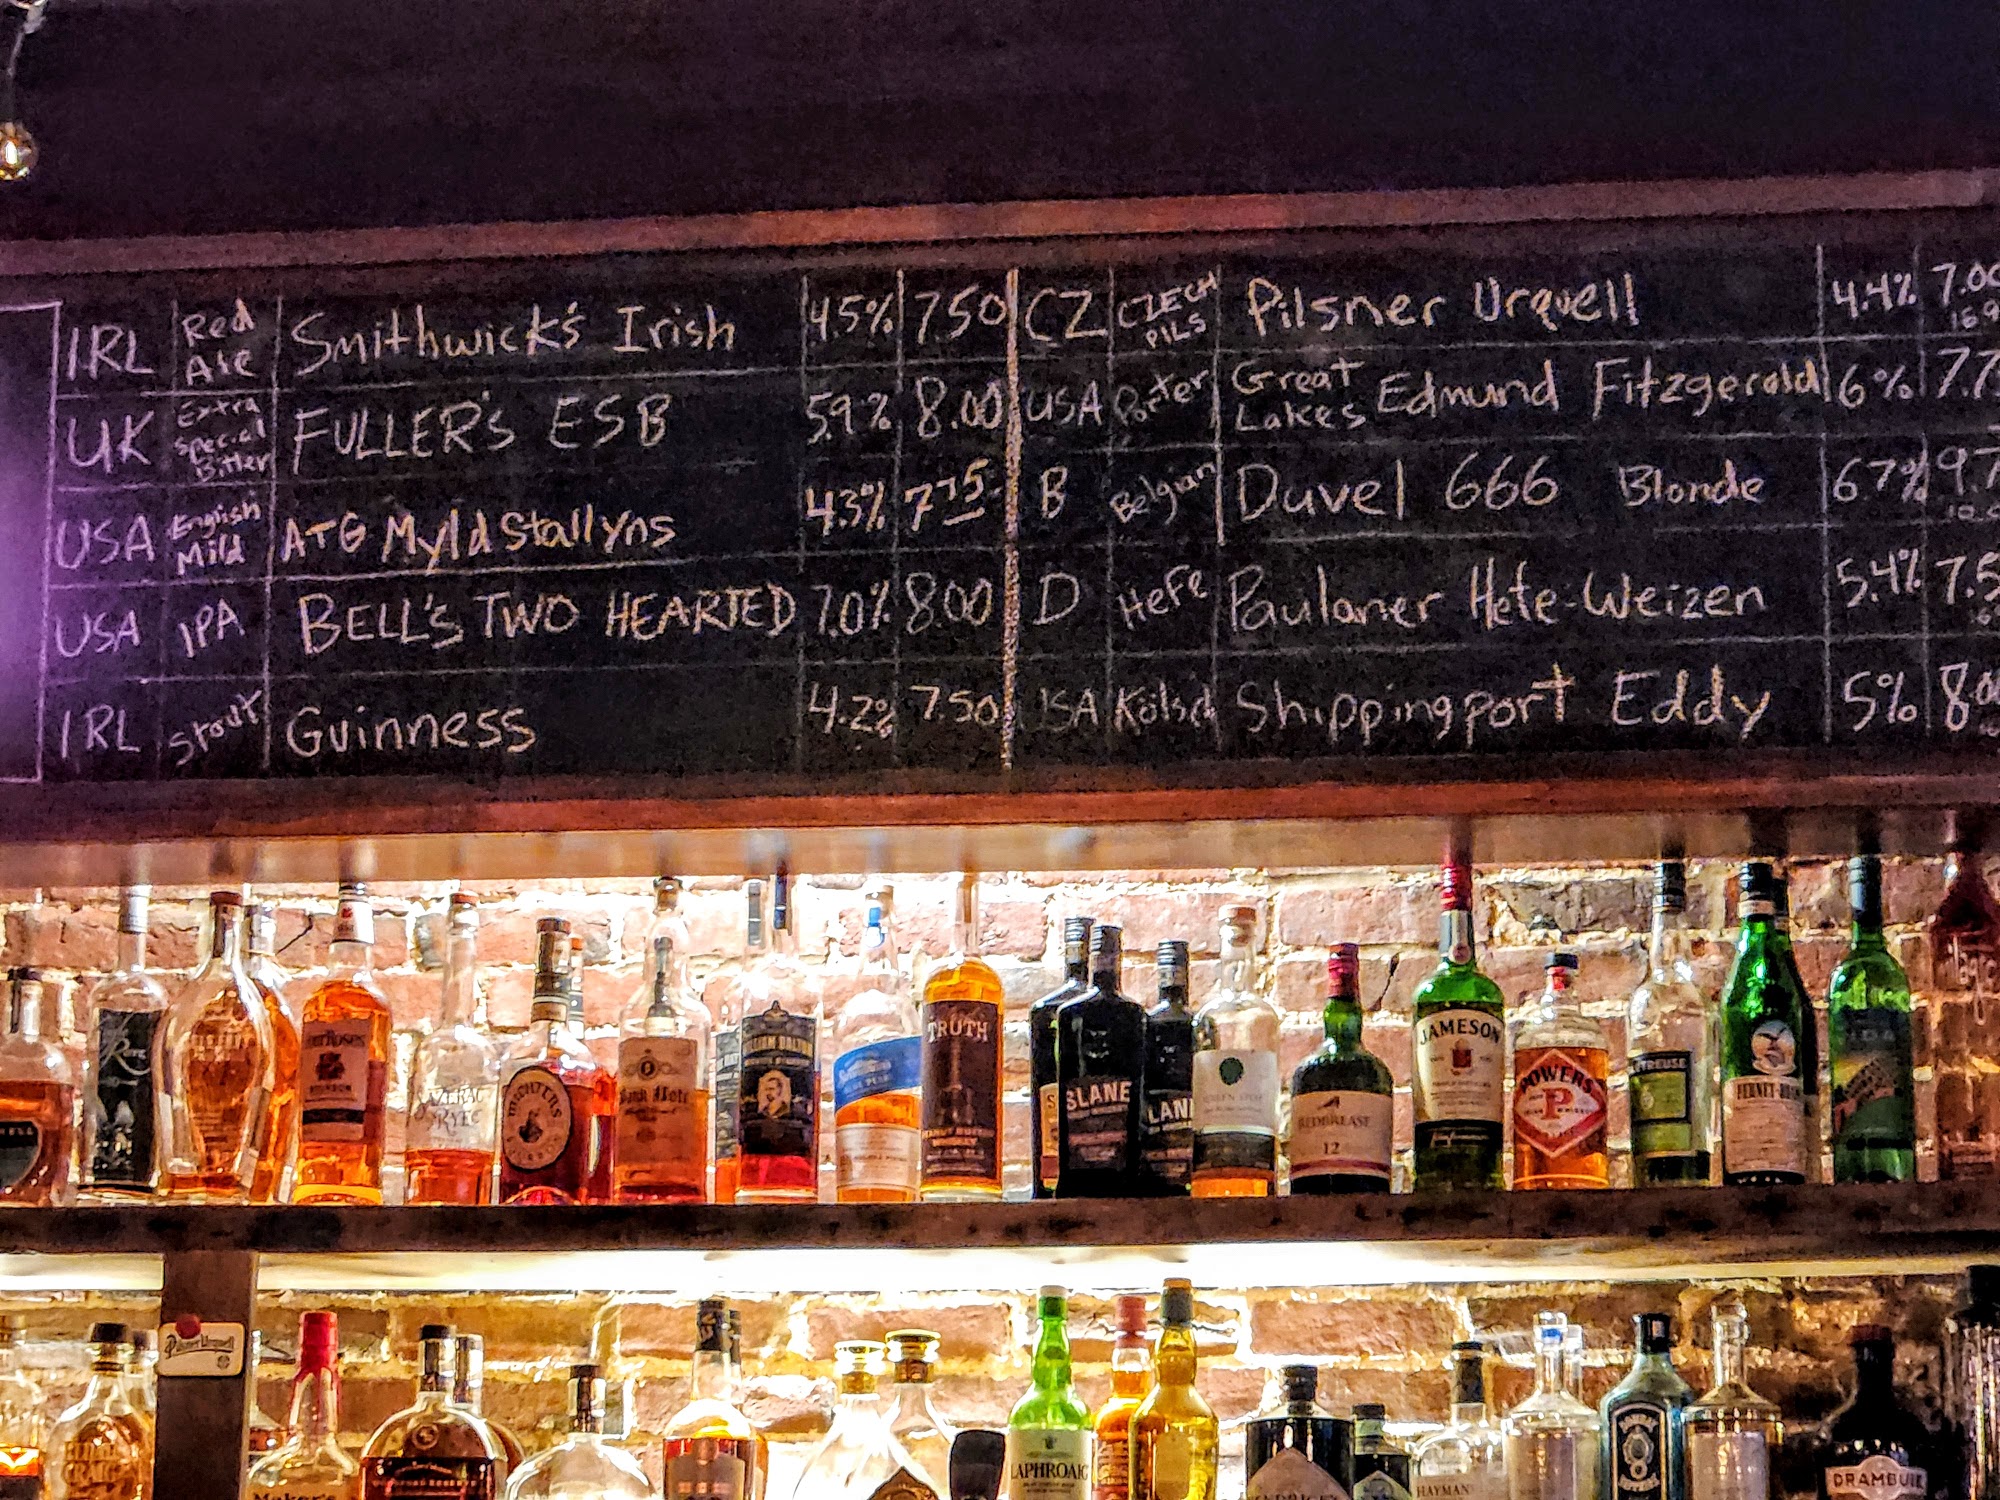 IRL Red Ale Smithwick's Irish 4.5% 7.50
UK Extra Special Bitter FULLER'S ESB 5.9% 8.00
USA English Mild AtG Myld Stallyns 4.3% 7.75
USA IPA BELL'S TWO HEARTED 7.0% 8.00
IRL Stout Guinness 4.2% 7.50
CZ CZECH PILS Pilsner Urquell 4.4% 7.00
USA Porter Great Lakes Edmund Fitzgerald 6%
B Belgian Duvel 666 Blonde 6.7%
D Hefe Paulaner Hefe-Weizen 5.4%
USA Kölsch Shippingport Eddy 5%
SAZERAC RYE
MICHTERS
Bank Note
TRUTH
SLANE
REDBREAST
12
JAMESON
POWERS
P
FERNET-BRANCA
Pilsner Urquell
CRAIG
Maker's
LAPHROAIG
HAYMAN
DRAMBUIE